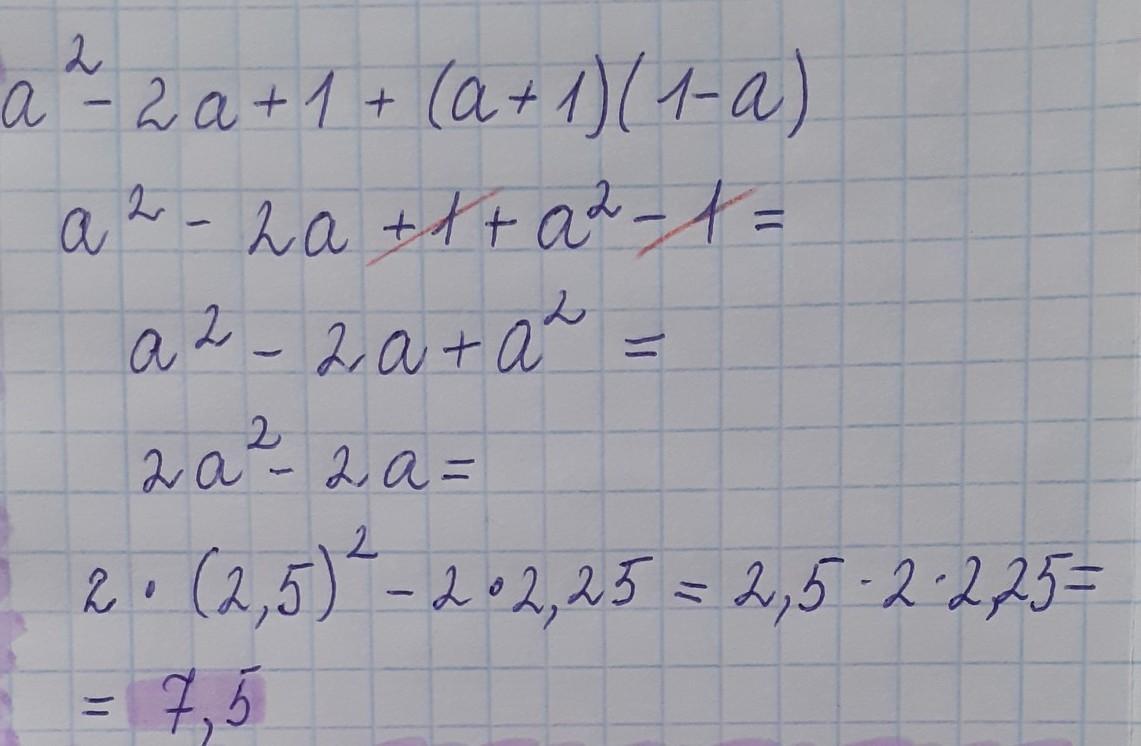 a² - 2a + 1 + (a + 1)(1 - a)
a² - 2a + 1 + a² - 1 =
a² - 2a + a² =
2a² - 2a =
2 · (2,5)² - 2 · 2,25 = 2,5 - 2 · 2,25 =
= 7,5